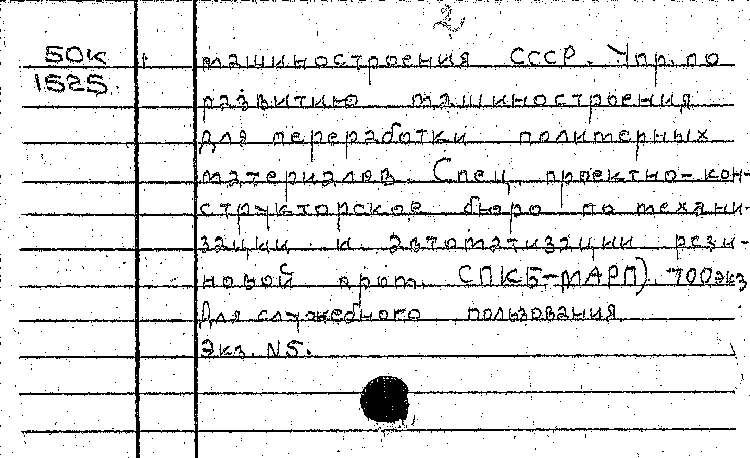 2
50к машиностроения СССР. Упр. по
1525 развитию машиностроения
для переработки полимерных
материалов. Спец. проектно-кон-
структорское бюро по механи-
зации и автоматизации рези-
новой пром. СПКБ-МАРП). 700 экз
Для служебного пользования
Экз. N5.